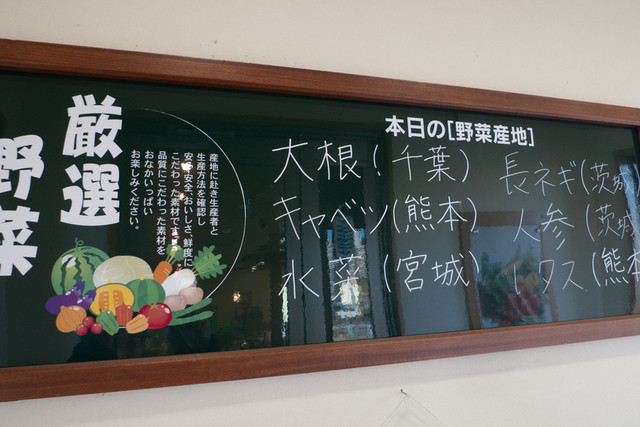 厳選
野菜
産地に赴き生産者と
生産方法を確認し
安心・安全、おいしさ、鮮度に
こだわった素材です。
品質にこだわった素材を
おなかいっぱい
お楽しみください。
本日の[野菜産地]
大根(千葉)
キャベツ(熊本)
水菜(宮城)
長ネギ(茨城)
人参(茨城
レタス(熊本